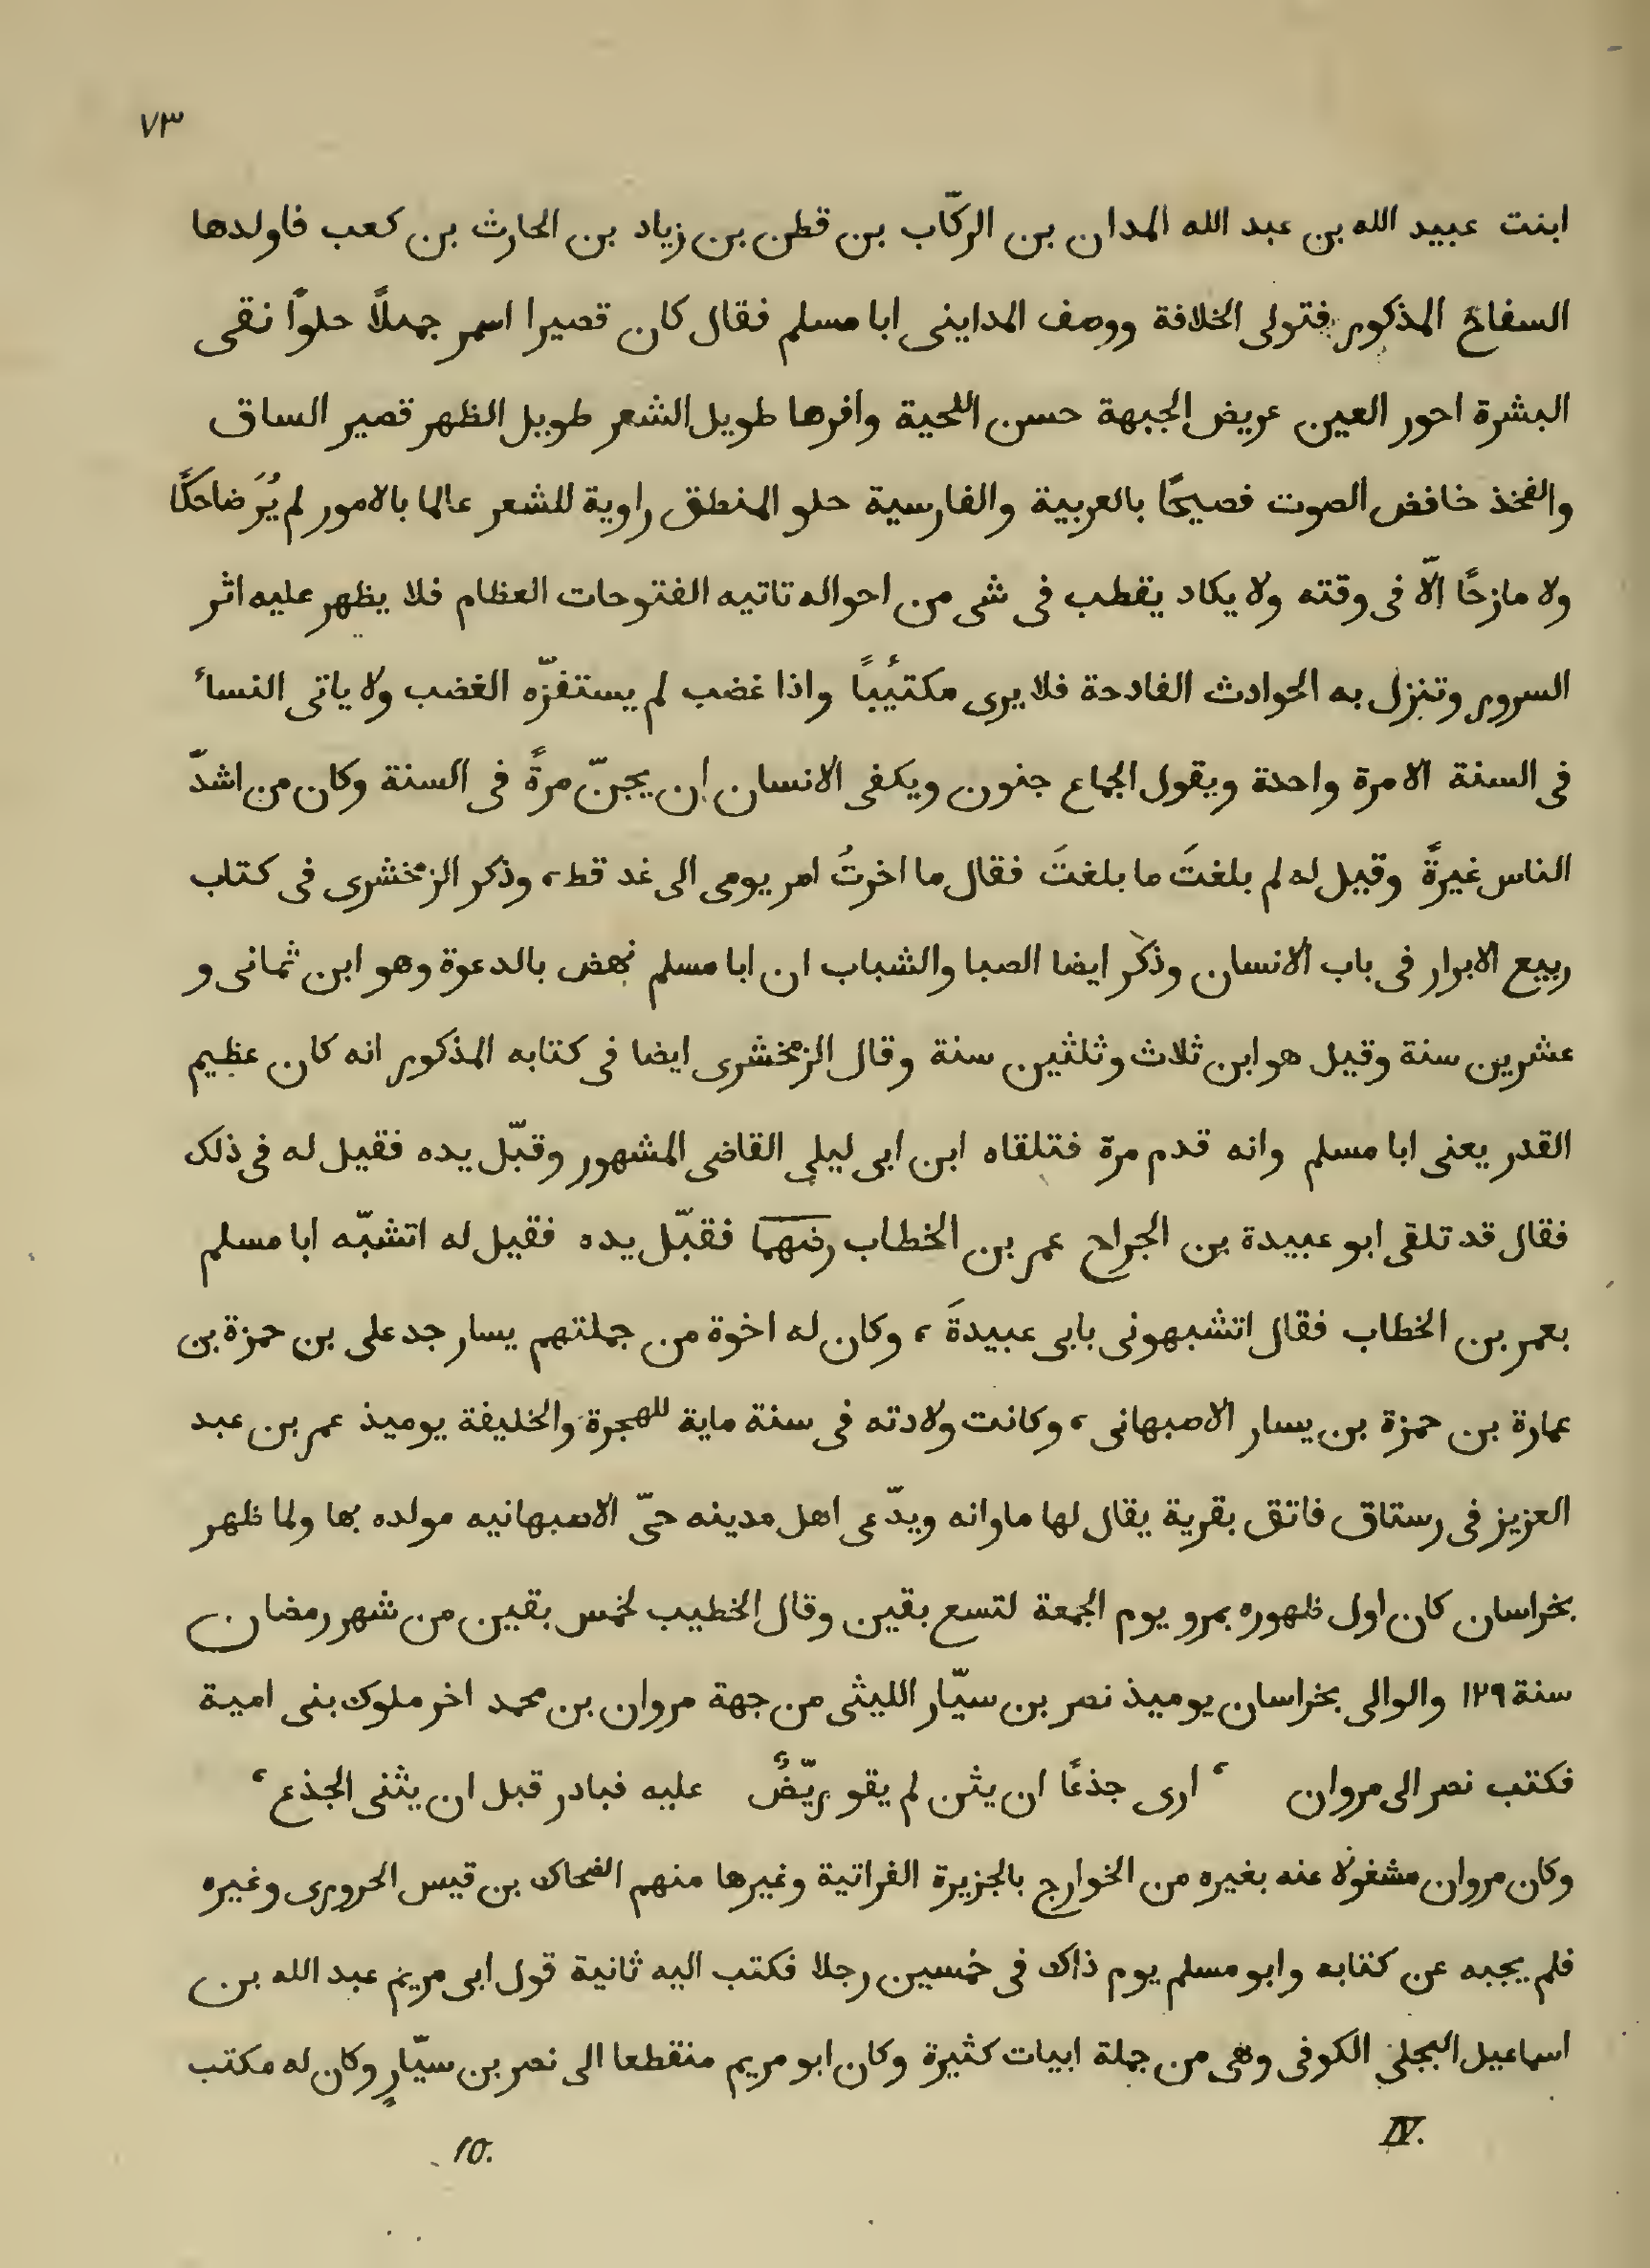 ٧٣
ابنت عبيد الله بن عبد الله المدان بن الركّاب بن قطن بن زياد بن الحارث بن كعب فاولدها
السفاح المذكور فتولى الخلافة ووصف المداينى ابا مسلم فقال كان قصيرا اسمر جملًا حلوًا نقى
البشرة احور العين عريض الجبهة حسن اللحية وافرها طويل الشعر طويل الظهر قصير الساق
والفخذ خافض الصوت فصيحًا بالعربية والفارسية حلو المنطق راوية للشعر عالما بالامور لم يُرَ ضاحكًا
ولا مازحًا الّا فى وقته ولا يكاد يقطب فى شى من احواله تاتيه الفتوحات العظام فلا يظهر عليه اثر
السرور وتنزل به الحوادث الفادحة فلا يرى مكتئيبًا واذا غضب لم يستفزّه الغضب ولا ياتى النساء
فى السنة الا مرة واحدة ويقول الجماع جنون ويكفى الانسان ان يجنّ مرةً فى السنة وكان من اشدّ
الناس غيرةً وقيل له لم بلغتَ ما بلغتَ فقال ما اخرتُ امر يومى الى غد قط، وذكر الزمخشرى فى كتاب
ربيع الابرار فى باب الانسان وذكر ايضا الصبا والشباب ان ابا مسلم نهض بالدعوة وهو ابن ثمانى و
عشرين سنة وقيل هو ابن ثلاث وثلثين سنة وقال الزمخشرى ايضا فى كتابه المذكور انه كان عظيم
القدر يعنى ابا مسلم وانه قدم مرّة فتلقاه ابن ابى ليلى القاضى المشهور وقبّل يده فقيل له فى ذلك
فقال قد تلقى ابو عبيدة بن الجراح عمر بن الخطاب رضهما فقبّل يده فقيل له اتشبّه ابا مسلم
بعمر بن الخطاب فقال اتشبهونى بابى عبيدةَ، وكان له اخوة من جملتهم يسار جد على بن حمزة بن
عمارة بن حمزة بن يسار الاصبهانى، وكانت ولادته فى سنة ماية للهجرة والخليفة يوميذ عمر بن عبد
العزيز فى رستاق فاتق بقرية يقال لها ماوانه ويدّعى اهل مدينه حىّ الاصبهانيه مولده بها ولما ظهر
بخراسان كان اول ظهوره بمرو يوم الجمعة لتسع بقين وقال الخطيب لخمس بقين من شهر رمضان
سنة ١٢٩ والوالى بخراسان يوميذ نصر بن سيّار الليثى من جهة مروان بن محمد اخر ملوك بنى امية
فكتب نصر الى مروان ، ارى جذعًا ان يثن لم يقو ريّضٌ عليه فبادر قبل ان يثنى الجذع ،
وكان مروان مشغولا عنه بغيره من الخوارج بالجزيرة الفراتية وغيرها منهم الضحاك بن قيس الحرورى وغيره
فلم يجبه عن كتابه وابو مسلم يوم ذاك فى خمسين رجلا فكتب اليه ثانية قول ابى مريم عبد الله بن
اسماعيل البجلى الكوفى وهى من جملة ابيات كثيرة وكان ابو مريم منقطعا الى نصر بن سيّارٍ وكان له مكتب
IV. 10.